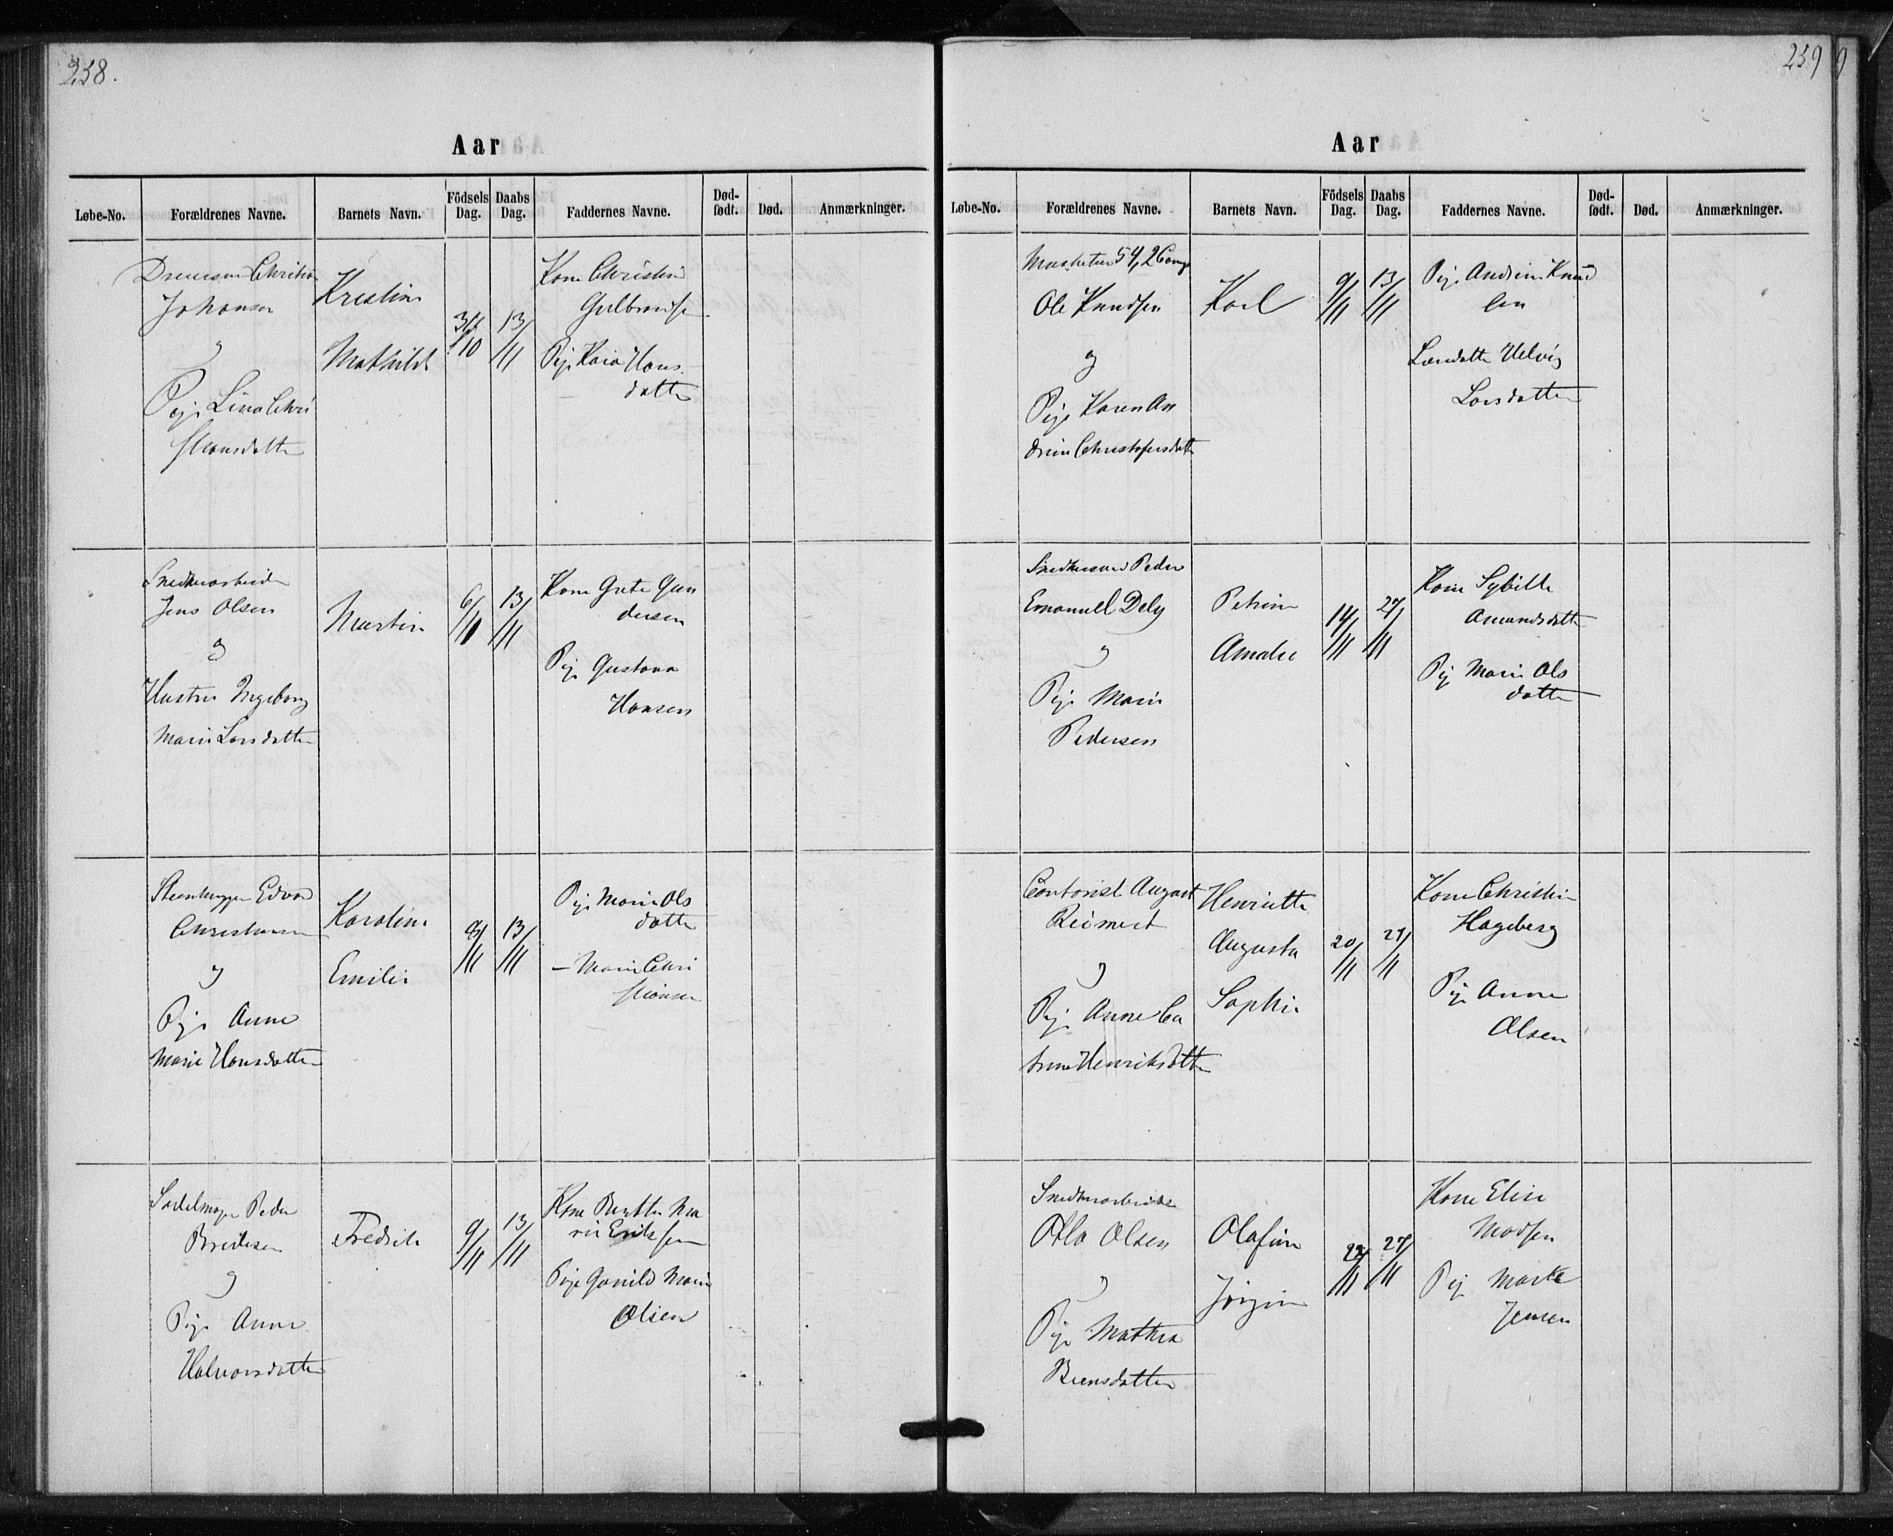 238.
Aar
Løbe-No. Forældrenes Navne. Barnets Navn. Födsels Dag. Daabs Dag. Faddernes Navne. Død-født. Død. Anmærkninger.
Christian
Johansen
og
Pige Lina Chri
stiansdatter
Kristine
Mathilde
31/10
13/11
Kone Christine
Gulbrandsen
Pige Kaia Hans
datter
Snedkerarbeider
Jens Olsen
og
Hustru Ingeborg
Marie Larsdatter
Martin
6/11
13/11
Kone Grete Gun
dersen
Pige Gustava
Hansen
Steenhugger Edvard
Christiansen
og
Pige Anne
Marie Hansdatter
Karoline
Emilie
9/11
13/11
Pige Marie Ols
datter
— Marie Chri
stiansen
Sadelmager Peder
Bredesen
og
Pige Anne
Halvorsdatter
Fredrik
9/11
13/11
Kone Berthe Ma
rie Eriksen
Pige Gunild Marie
Olsen
239
Aar
Løbe-No. Forældrenes Navne. Barnets Navn. Födsels Dag. Daabs Dag. Faddernes Navne. Død-født. Død. Anmærkninger.
Musketer 54, 2 Comp
Ole Knudsen
og
Pige Karen An
drine Christofersdatter
Karl
9/11
13/11
Pige Andrine Knud
sen
Helvig
Larsdatter
Snedkersvend Peder
Emanuel Dely
og
Pige Marie
Pedersen
Petrine
Amalie
14/11
27/11
Kone Sybille
Amundsdatter
Pige Marie Ols
datter
Contorist August
Reimert
og
Pige Anne Ca
trine Henriksdatter
Henriette
Augusta
Sophie
20/11
27/11
Kone Christine
Hageberg
Pige Anne
Olsen
Snedkerarbeider
Olsen
og
Pige Mathea
Berntsdatter
Olafine
Jørgine
22/11
27/11
Kone Elise
Madsen
Pige Marte
Jensen